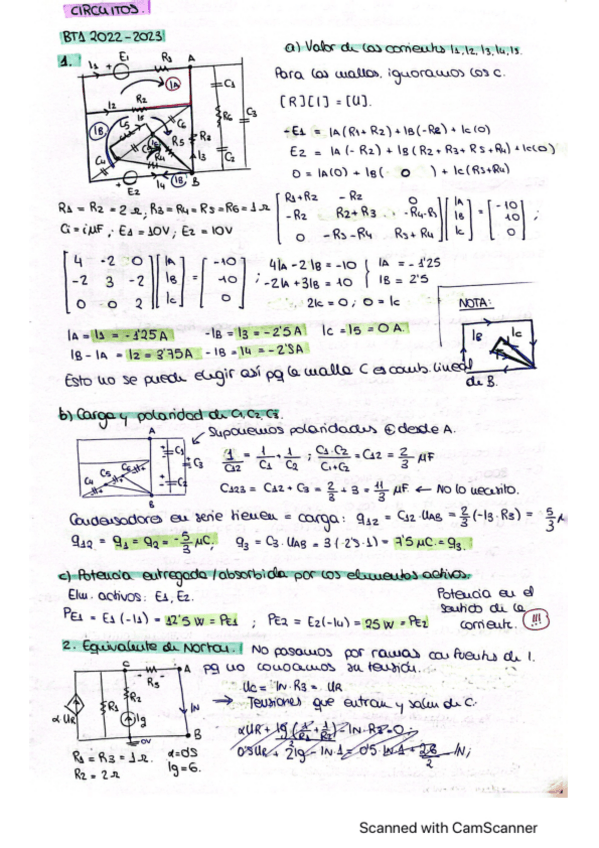 CIRCUITOS.
BT1 2022-2023
1.
a) Valor de las corrientes I1, I2, I3, I4, I5.
Para las mallas, ignoramos los C.
[R][I] = [U].
-E1 = IA(R1+R2) + IB(-R2) + IC(0)
E2 = IA(-R2) + IB(R2+R3+R5+R4) + IC(0)
0 = IA(0) + IB( 0 ) + IC(R5+R4)
R1 = R2 = 2 Ω, R3 = R4 = R5 = R6 = 1 Ω
Ci = iμF, E1 = 10V; E2 = 10V
R1+R2 -R2 0 IA -10
-R2 R2+R3 -R4-R5 IB = 10 ;
0 -R5-R4 R5+R4 IC 0
4 -2 0 IA -10
-2 3 -2 IB = -10 ;
0 0 2 IC 0
4IA - 2IB = -10 IA = -1'25
-2IA + 3IB = 10 IB = 2'5
2IC = 0; 0 = IC
NOTA:
IA = I1 = -1'25A -IB = I3 = -2'5A IC = I5 = 0 A.
IB - IA = I2 = 3'75A -IB = I4 = -2'5A
Esto no se puede elegir así pq la malla C es comb. lineal
de B.
b) Carga y polaridad de C1, C2, C3.
Suponemos polaridades + desde A.
1/C12 = 1/C1 + 1/C2 ; C1·C2/C1+C2 = C12 = 2/3 μF
C123 = C12 + C3 = 2/3 + 3 = 11/3 μF ← No lo necesito.
Condensadores en serie tienen = carga: q12 = C12·UAB = 2/3(-I3·R3) = 5/3
q12 = q1 = q2 = -5/3 μC; q3 = C3·UAB = 3(2'5·1) = 7'5μC = q3.
c) Potencia entregada/absorbida por los elementos activos.
Elm. activos: E1, E2.
Potencia en el
sentido de la
corriente. !!!
PE1 = E1(-I1) = 12'5 W = PE1 ; PE2 = E2(-I4) = 25 W = PE2
2. Equivalente de Norton.
No pasamos por ramas con fuentes de I.
pq no conocemos su tensión.
UC = IN·R3 = UR
→ Tensiones que entran y salen de C.
R1 = R3 = 1 Ω.
R2 = 2 Ω
α=0'5
Ig = 6.
Scanned with CamScanner